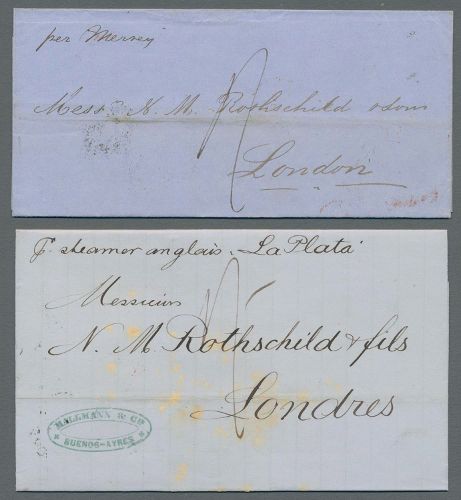 per Mersey
Messrs N. M. Rothschild & Sons
London
P. steamer anglais "La Plata"
Messieurs
N. M. Rothschild & fils
Londres
MALLMANN & CO
BUENOS-AYRES